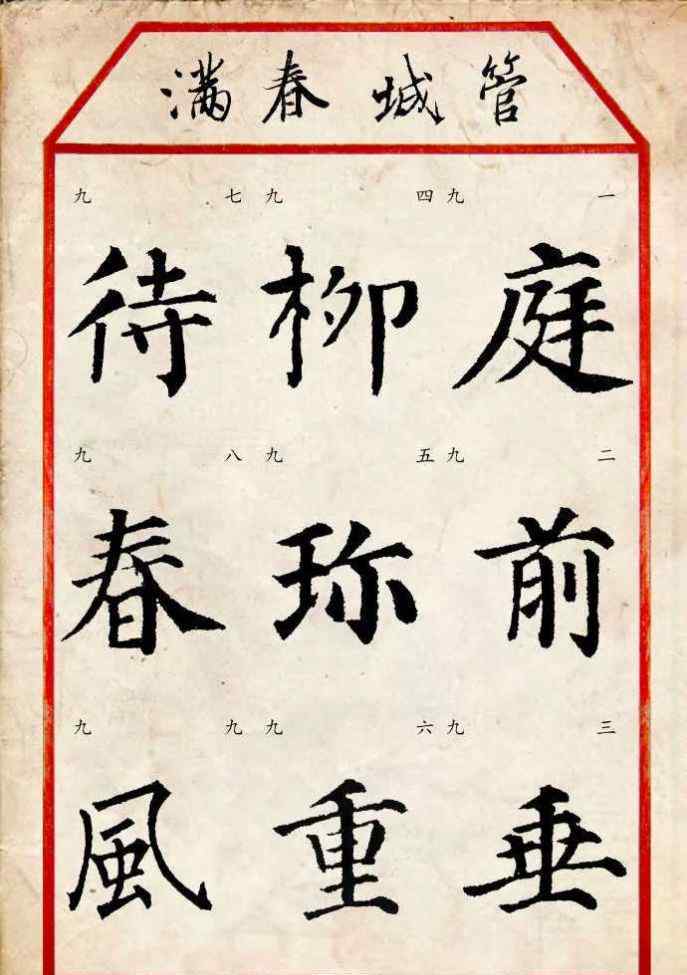 管城春满
一九
庭
二九
前
三九
垂
四九
柳
五九
珎
六九
重
七九
待
八九
春
九九
風